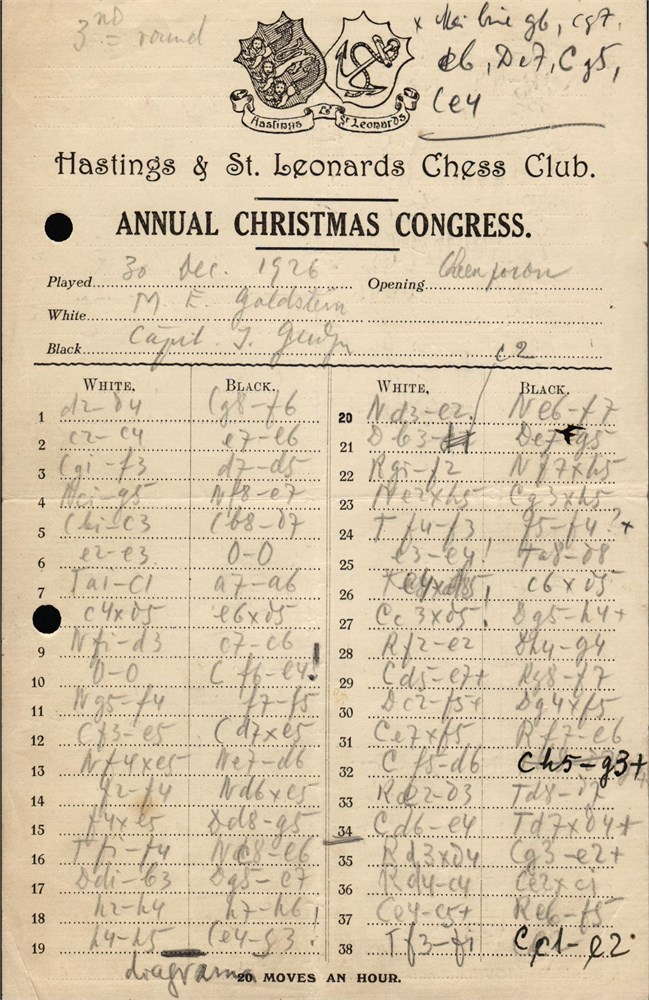 3rd = round
x g6, cg7,
e6, De7, Cg5,
Ce4
Hastings & St Leonards
Hastings & St. Leonards Chess Club.
ANNUAL CHRISTMAS CONGRESS.
Played 30 Dec. 1926 Opening
White M. E. Goldstein
Black
c2
WHITE. BLACK. WHITE. BLACK.
1 d2-d4 Cg8-f6 20 Nd3-e2. Ne6-f7
2 c2-c4 e7-e6 21 Db3- De7-g5
3 Cg1-f3 d7-d5 22 Rg1-f2 Nf7xh5
4 Nc1-g5 Nf8-e7 23 Ne2xh5 Cg3xh5
5 Cb1-c3 Cb8-d7 24 Tf4-f3 f5-f4?+
6 e2-e3 0-0 25 e3-e4! Ta8-d8
7 Ta1-c1 a7-a6 26 c6xd5
c4xd5 e6xd5 27 Cc3xd5! Dg5-h4+
9 Nf1-d3 c7-c6 28 Rf2-e2 Dh4-g4
10 0-0 Cf6-e4! 29 Cd5-e7+ Rg8-f7
11 Ng5-f4 f7-f5 30 Dc2-f5+ Dg4xf5
12 Cf3-e5 Cd7xe5 31 Ce7xf5 Rf7-e6
13 Nf4xe5 Ne7-d6 32 Cf5-d6 Ch5-g3+
14 f2-f4 Nd6xe5 33 Re2-d3 Td8-d7
15 f4xe5 Dd8-g5 34 Cd6-e4 Td7xd4+
16 Tf1-f4 Nc8-e6 35 Rd3xd4 Cg3-e2+
17 Dd1-b3 Dg5-e7 36 Rd4-c4 Ce2xc1
18 h2-h4 h7-h6! 37 Ce4-c5+ Re6-f5
19 h4-h5 Ce4-g3! 38 Tf3-f1 Cc1-e2.
diagrama 20 MOVES AN HOUR.